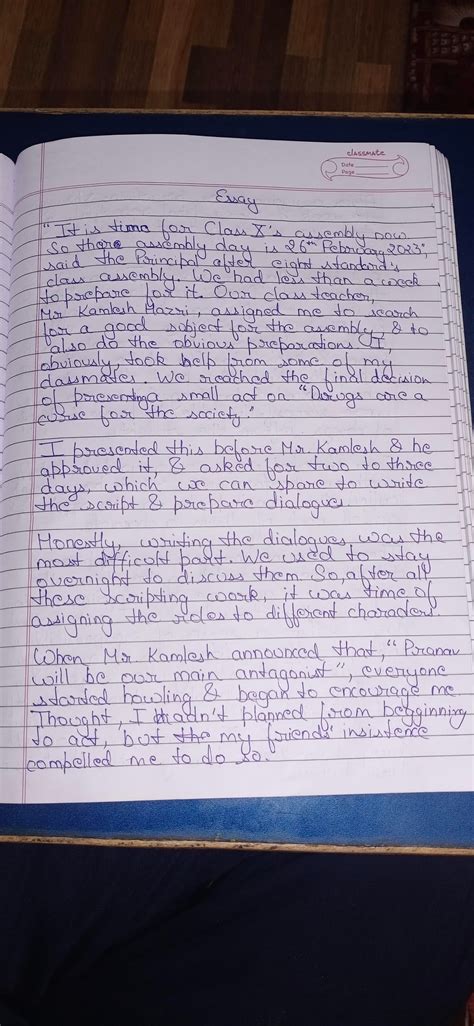 classmate
Date
Page
Essay
"It is time for Class X's assembly now
So there assembly day is 26th February 2023",
said the Principal after eight standard's
class assembly. We had less than a week
to prepare for it. Our class teacher,
Mr Kamlesh Hazri, assigned me to search
for a good subject for the assembly, & to
also do the obvious preparations I,
obviously, took help from some of my
classmates. We reached the final decision
of presenting small act on "Drugs are a
curse for the society."
I presented this before Mr. Kamlesh & he
approved it, & asked for two to three
days, which we can spare to write
the script & prepare dialogues
Honestly, writing the dialogues was the
most difficult part. We used to stay
overnight to discuss them. So, after all
these scripting work, it was time of
assigning the roles to different characters.
When Mr Kamlesh announced that, "Pranav
will be our main antagonist", everyone
started howling & began to encourage me
Thought, I hadn't planned from begginning
to act, but the my friends' insistence
compelled me to do so.